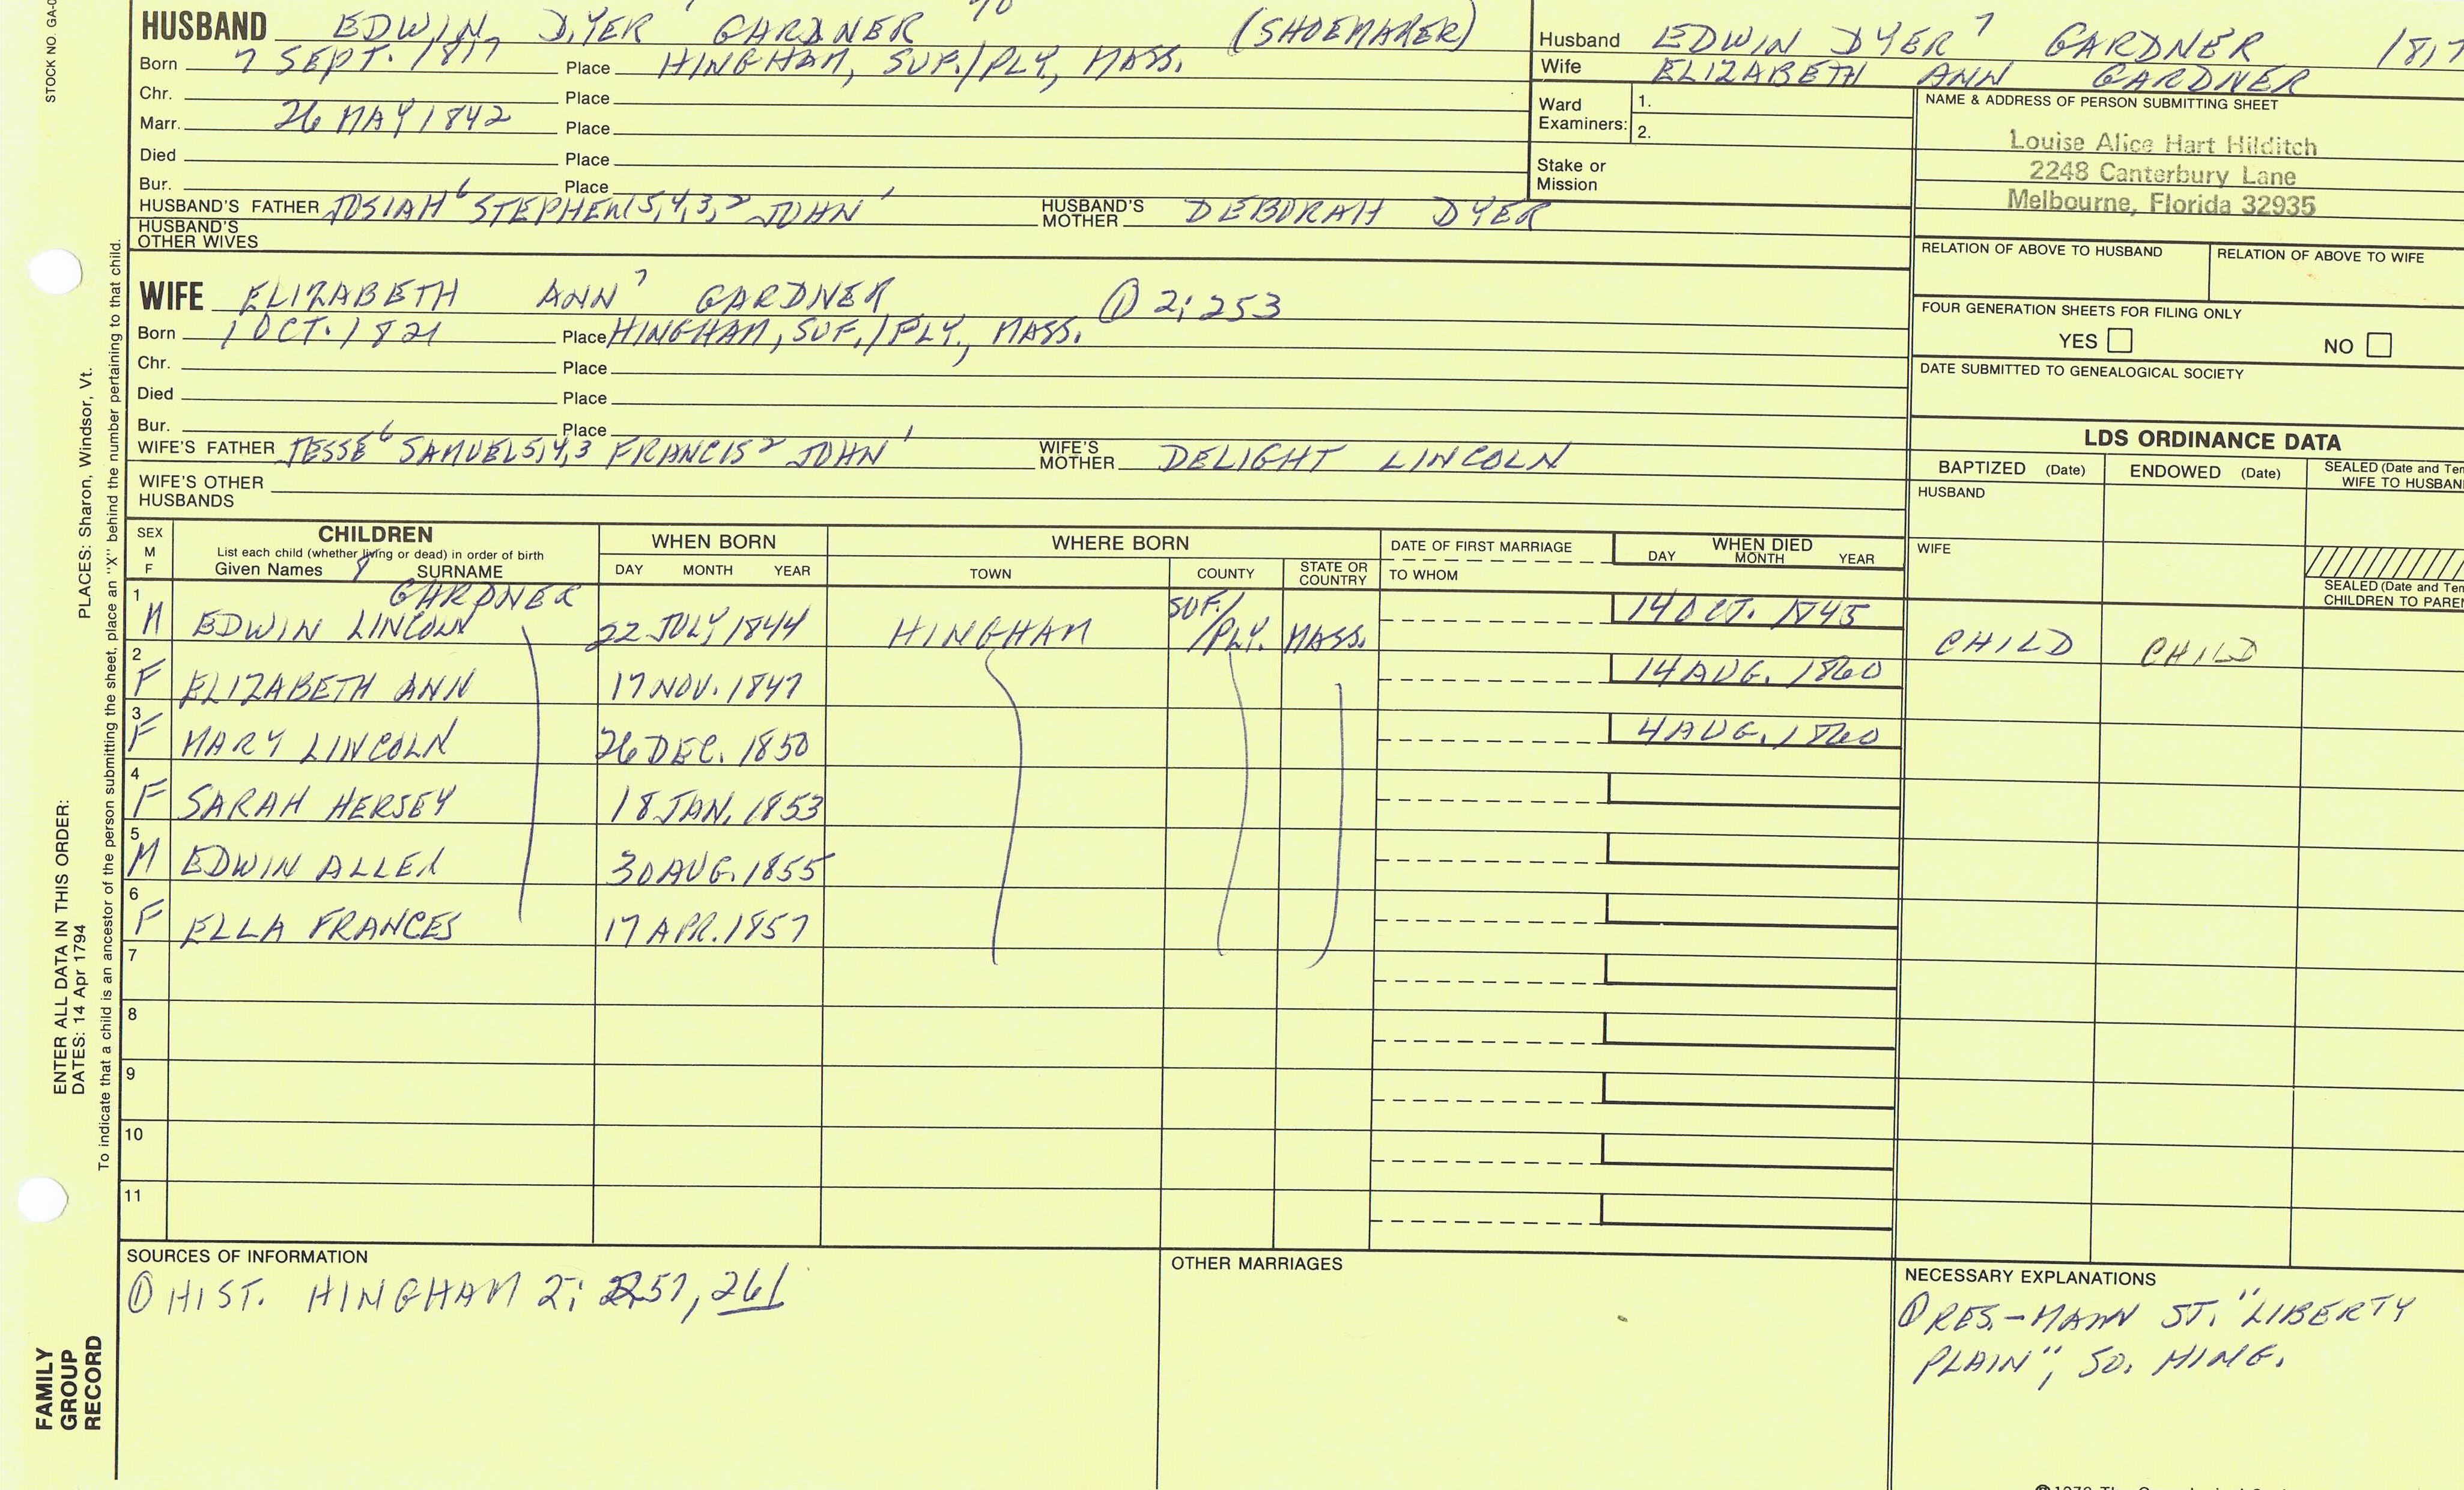 STOCK NO. GA-0
PLACES: Sharon, Windsor, Vt.
ENTER ALL DATA IN THIS ORDER:
DATES: 14 Apr 1794
To indicate that a child is an ancestor of the person submitting the sheet, place an "X" behind the number pertaining to that child.
FAMILY
GROUP
RECORD
HUSBAND EDWIN DYER 7 GARDNER (SHOEMAKER)
Born 7 SEPT. 1817 Place HINGHAM, SUF./PLY, MASS.
Chr. Place
Marr. 26 MAY 1842 Place
Died Place
Bur. Place
HUSBAND'S FATHER JOSIAH 6 STEPHEN 5,4,3,2 JOHN 1 HUSBAND'S MOTHER DEBORAH DYER
HUSBAND'S OTHER WIVES
WIFE ELIZABETH ANN 7 GARDNER ① 2; 253
Born 1 OCT. 1821 Place HINGHAM, SUF./PLY., MASS.
Chr. Place
Died Place
Bur. Place
WIFE'S FATHER JESSE 6 SAMUEL 5,4,3 FRANCIS 2 JOHN 1 WIFE'S MOTHER DELIGHT LINCOLN
WIFE'S OTHER HUSBANDS
Husband EDWIN DYER 7 GARDNER 1817
Wife ELIZABETH ANN GARDNER
Ward Examiners: 1.
2.
Stake or Mission
NAME & ADDRESS OF PERSON SUBMITTING SHEET
Louise Alice Hart Hilditch
2248 Canterbury Lane
Melbourne, Florida 32935
RELATION OF ABOVE TO HUSBAND RELATION OF ABOVE TO WIFE
FOUR GENERATION SHEETS FOR FILING ONLY
YES NO
DATE SUBMITTED TO GENEALOGICAL SOCIETY
LDS ORDINANCE DATA
BAPTIZED (Date) ENDOWED (Date) SEALED (Date and Tem
WIFE TO HUSBAN
HUSBAND
WIFE
SEALED (Date and Tem
CHILDREN TO PAREN
SEX M F CHILDREN WHEN BORN WHERE BORN DATE OF FIRST MARRIAGE WHEN DIED
List each child (whether living or dead) in order of birth
Given Names 8 SURNAME DAY MONTH YEAR TOWN COUNTY STATE OR COUNTRY TO WHOM DAY MONTH YEAR
GARDNER
1 M EDWIN LINCOLN 22 JULY 1844 HINGHAM SUF./ /PLY. MASS. 14 OCT. 1845 CHILD CHILD
2 F ELIZABETH ANN 17 NOV. 1847 14 AUG. 1860
3 F MARY LINCOLN 26 DEC. 1850 4 AUG. 1860
4 F SARAH HERSEY 18 JAN. 1853
5 M EDWIN ALLEN 30 AUG. 1855
6 F ELLA FRANCES 17 APR. 1857
7
8
9
10
11
SOURCES OF INFORMATION
① HIST. HINGHAM 2; 257, 261
OTHER MARRIAGES
NECESSARY EXPLANATIONS
① RES. - MAIN ST. "LIBERTY
PLAIN", SO. HING.